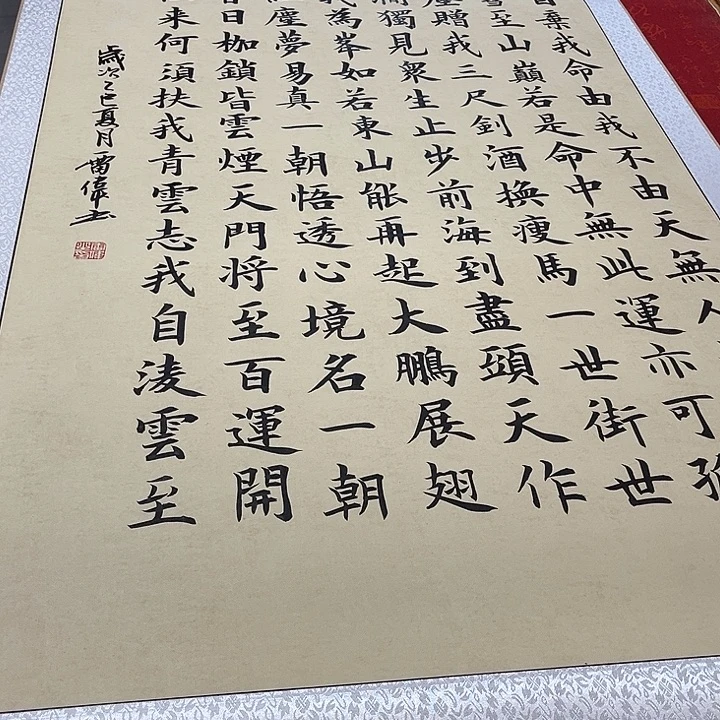 棄我命由我不由天無人
至山巔若是命中無此運亦可
贈我三尺剑酒換瘦馬一世街世
獨見衆生止步前海到盡頭天作
我為峯如若東山能再起大鵬展翅
塵夢易真一朝悟透心境名一朝
日枷鎖皆雲煙天門将至百運開
来何須扶我青雲志我自淩雲至
歲次乙巳夏月雷偉书